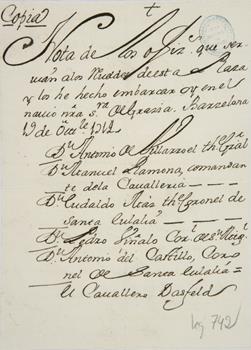 Copia
+
Nota de los ofiz.s que ser
vian a los de esta Plaza
y los he hecho embarcar oy en el
navio nra s.ra de Grazia. Barzelona
19 de 1712
D.n Antonio de Villarroel th.e Gral
D.n Manuel Ramona, comandan
te de la Cavalleria
D.n th.e Coronel de
santa eulalia
D.n Pedro Viñals Cor.l de
D.n Antonio del Castillo, Coro
nel de Santa Eulalia
el Cavallero Dasfeld
leg 742